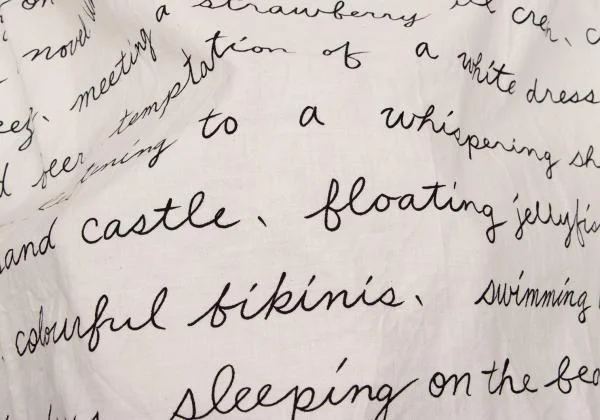 a strawberry
novel meeting temptation of a white dress
beer to a whispering
sand castle、 floating jellyfis
colourful bikinis、 swimming
sleeping on the bea